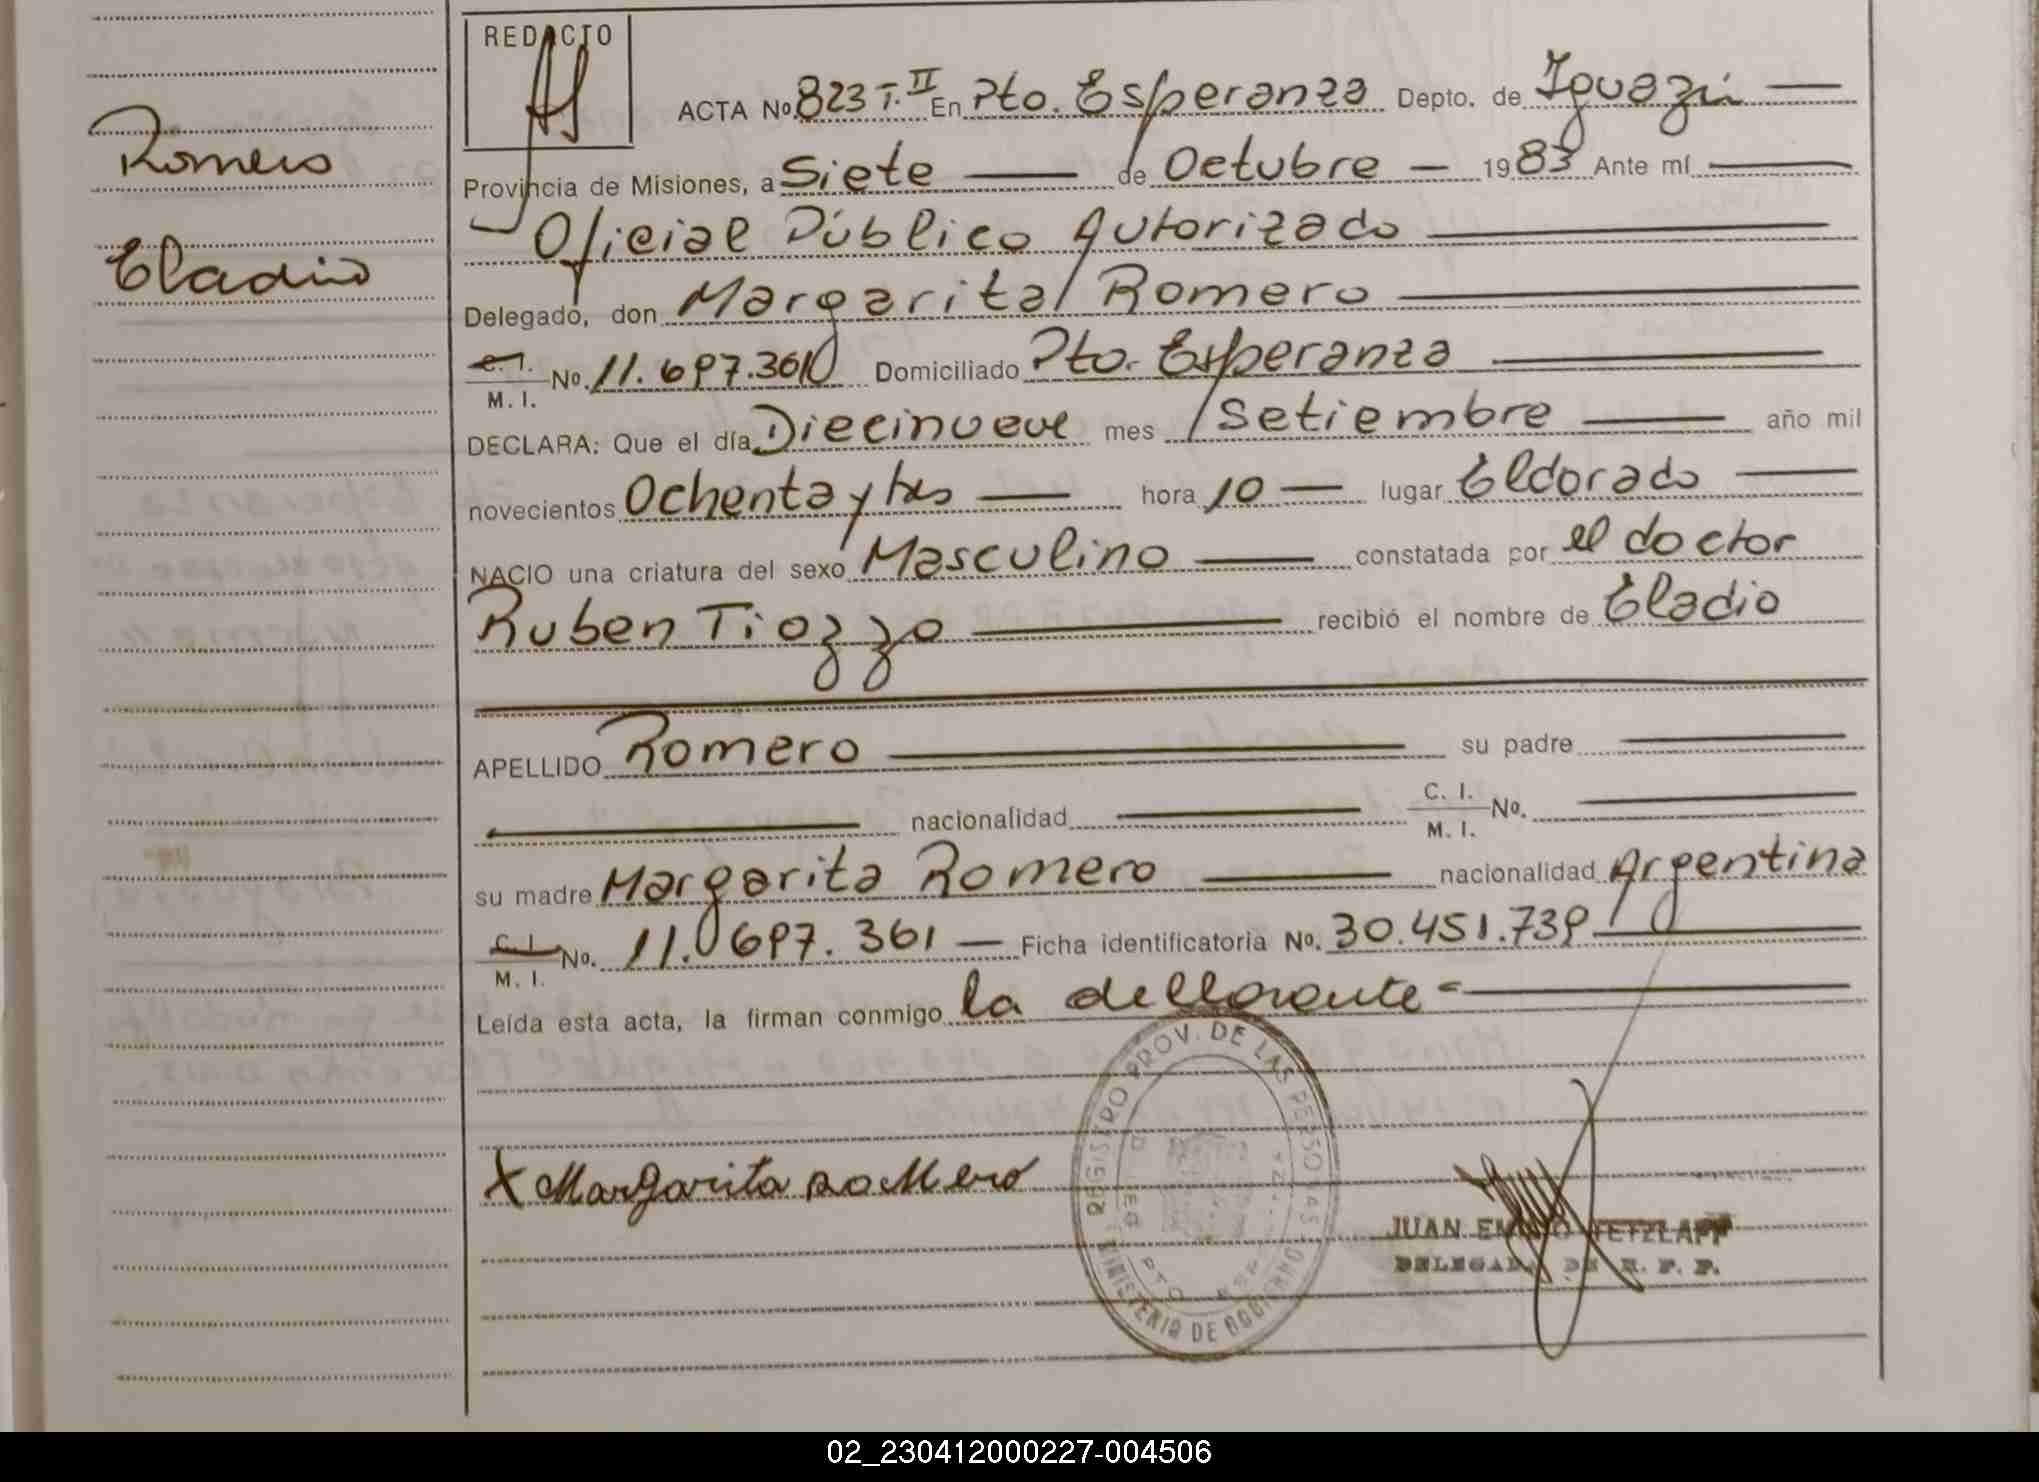 REDACTO
Romero
Eladio
ACTA Nº 823 T. II En Pto. Esperanza Depto. de Iguazú
Provincia de Misiones, a Siete de Octubre 1983 Ante mí
Oficial Público Autorizado
Delegado, don Margarita Romero
C. I.
M. I. Nº. 11.697.361 Domiciliado Pto. Esperanza
DECLARA: Que el día Diecinueve mes Setiembre año mil
novecientos Ochenta y tres hora 10 lugar Eldorado
NACIO una criatura del sexo Masculino constatada por el doctor
Ruben Tiozzo recibió el nombre de Eladio
APELLIDO Romero su padre
nacionalidad C. I.
M. I. Nº.
su madre Margarita Romero nacionalidad Argentina
C. I.
M. I. Nº. 11.697.361 Ficha identificatoria Nº. 30.451.739
Leída esta acta, la firman conmigo la declarante
REGISTRO PROV. DE LAS PERSONAS
MINISTERIO DE GOBIERNO
X Margarita Romero
JUAN EMILIO TETZLAFF
DELEGADO DE R. P. P.
02_230412000227-004506